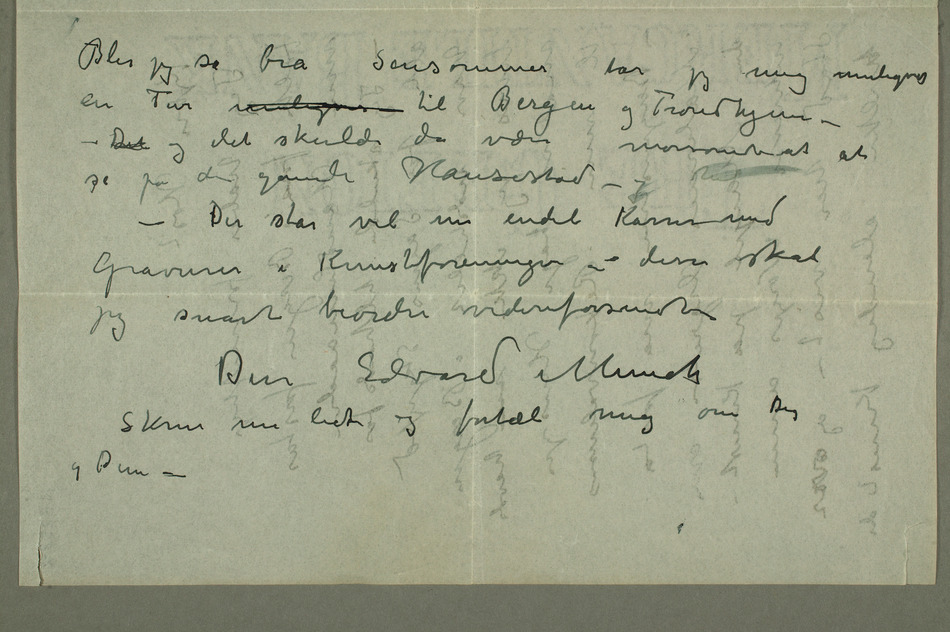 Blir jeg så bra Sensommer tar jeg mig muligvis
en Tur muligvis til Bergen og Trondhjem –
– Det og det skulde da være morsomt at
se på den gamle Hansestad –
– Der står vel nu endel Karrer med
Gravurer i Kunstforeningen – deres skal
jeg snart beordre videreforsendt –
Din Edvard Munch
Skriv nu lidt og fortæl mig om Dig
og Dine –